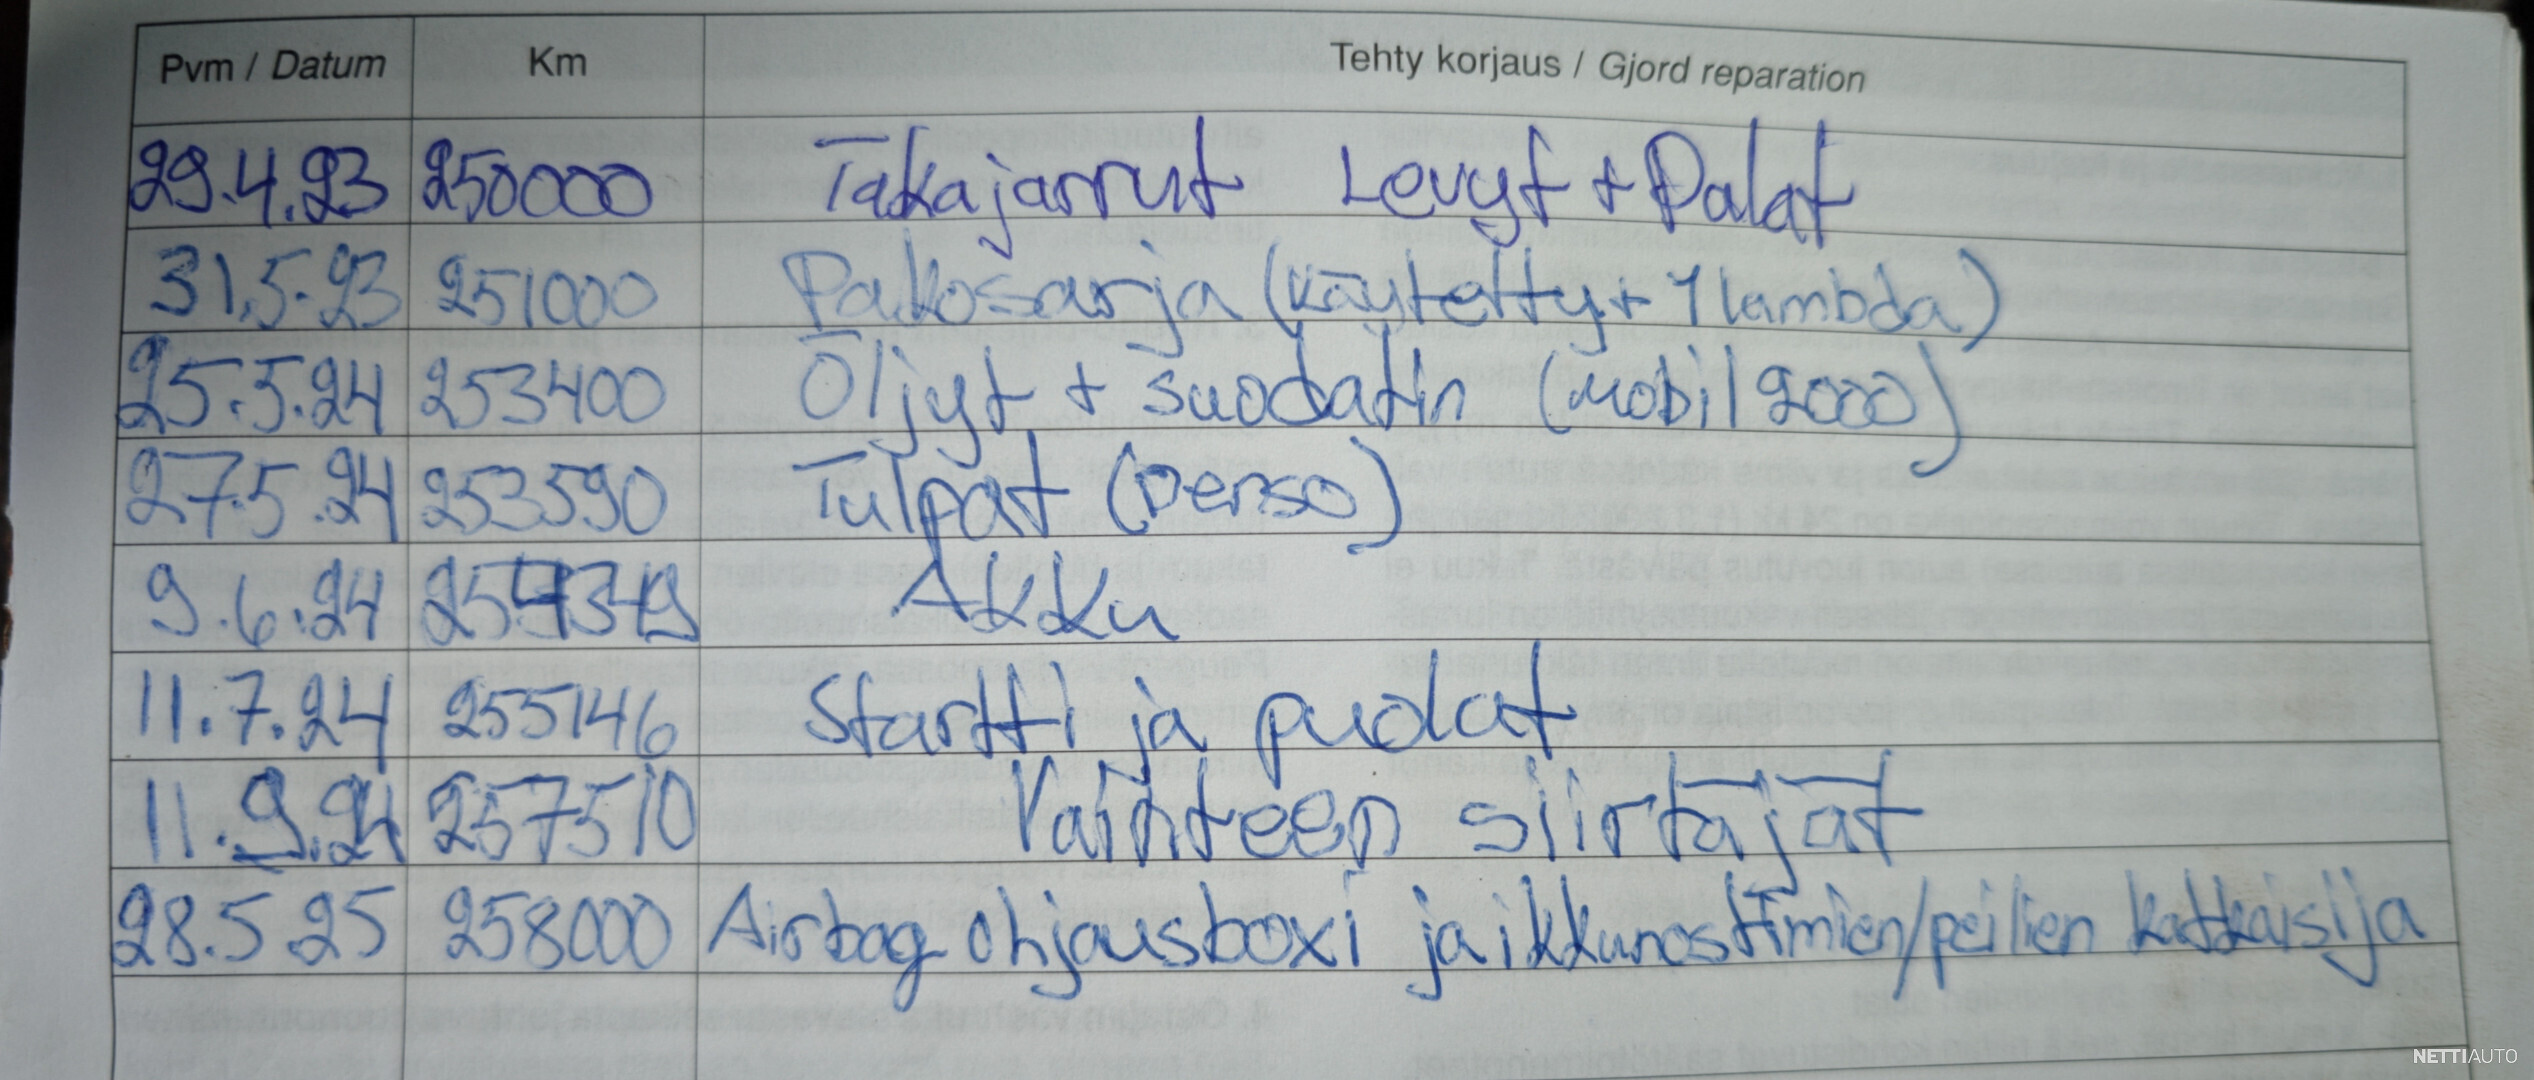 Pvm / Datum Km Tehty korjaus / Gjord reparation
29.4.23 250000 Takajarrut Levyt + Palat
31.5.23 251000 Pakosarja (käytetty + 1 lambda)
25.5.24 253400 Öljyt + suodatin (mobil 2000)
27.5.24 253590 Tulpat (Denso)
9.6.24 Akku
11.7.24 255146 Startti ja puolat
11.9.24 257510 Vaihteen siirtäjät
28.5 25 258000 Airbag ohjausboxi ja ikkunostimien/peilien katkaisija
NETTIAUTO